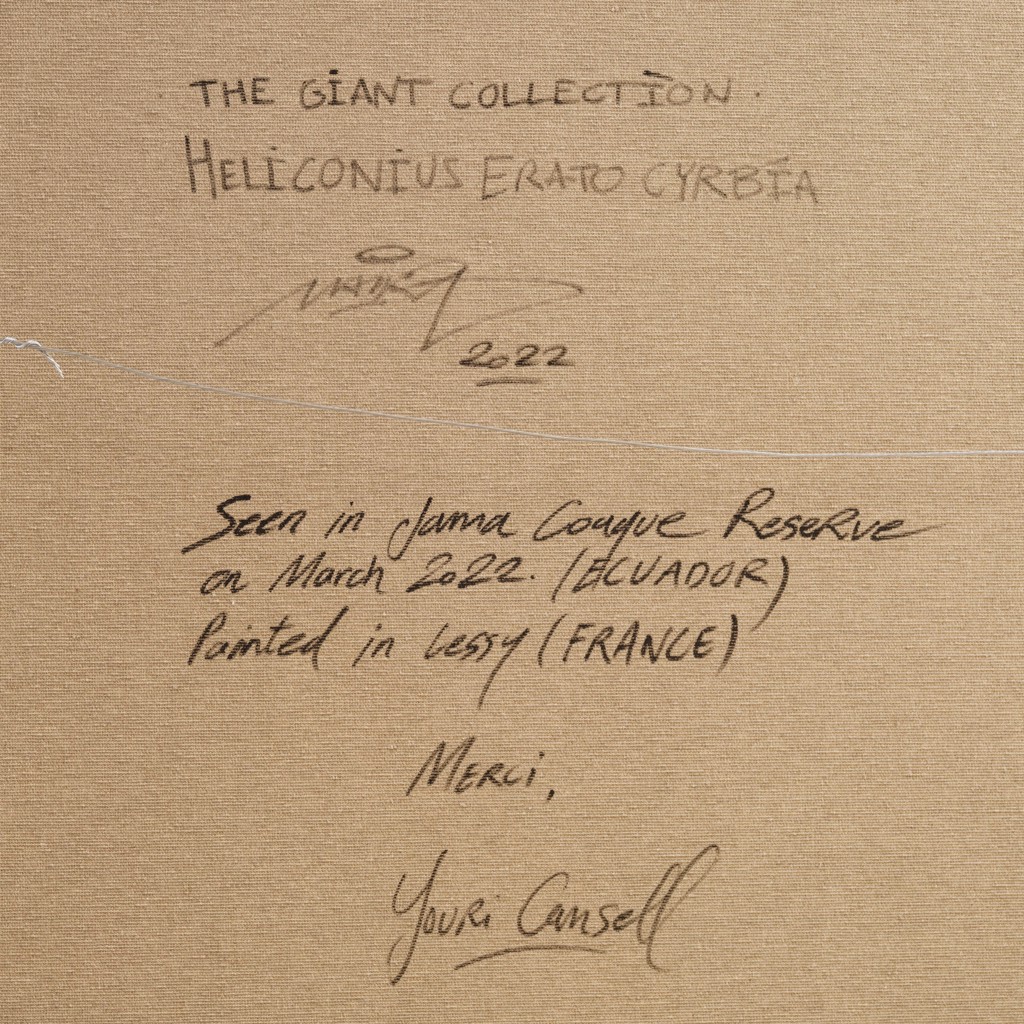 THE GIANT COLLECTION
HELICONIUS ERATO CYRBIA
2022
Seen in Jama Couque Reserve
on March 2022. (ECUADOR)
Painted in Lessy (FRANCE)
MERCI,
Youri Cansell